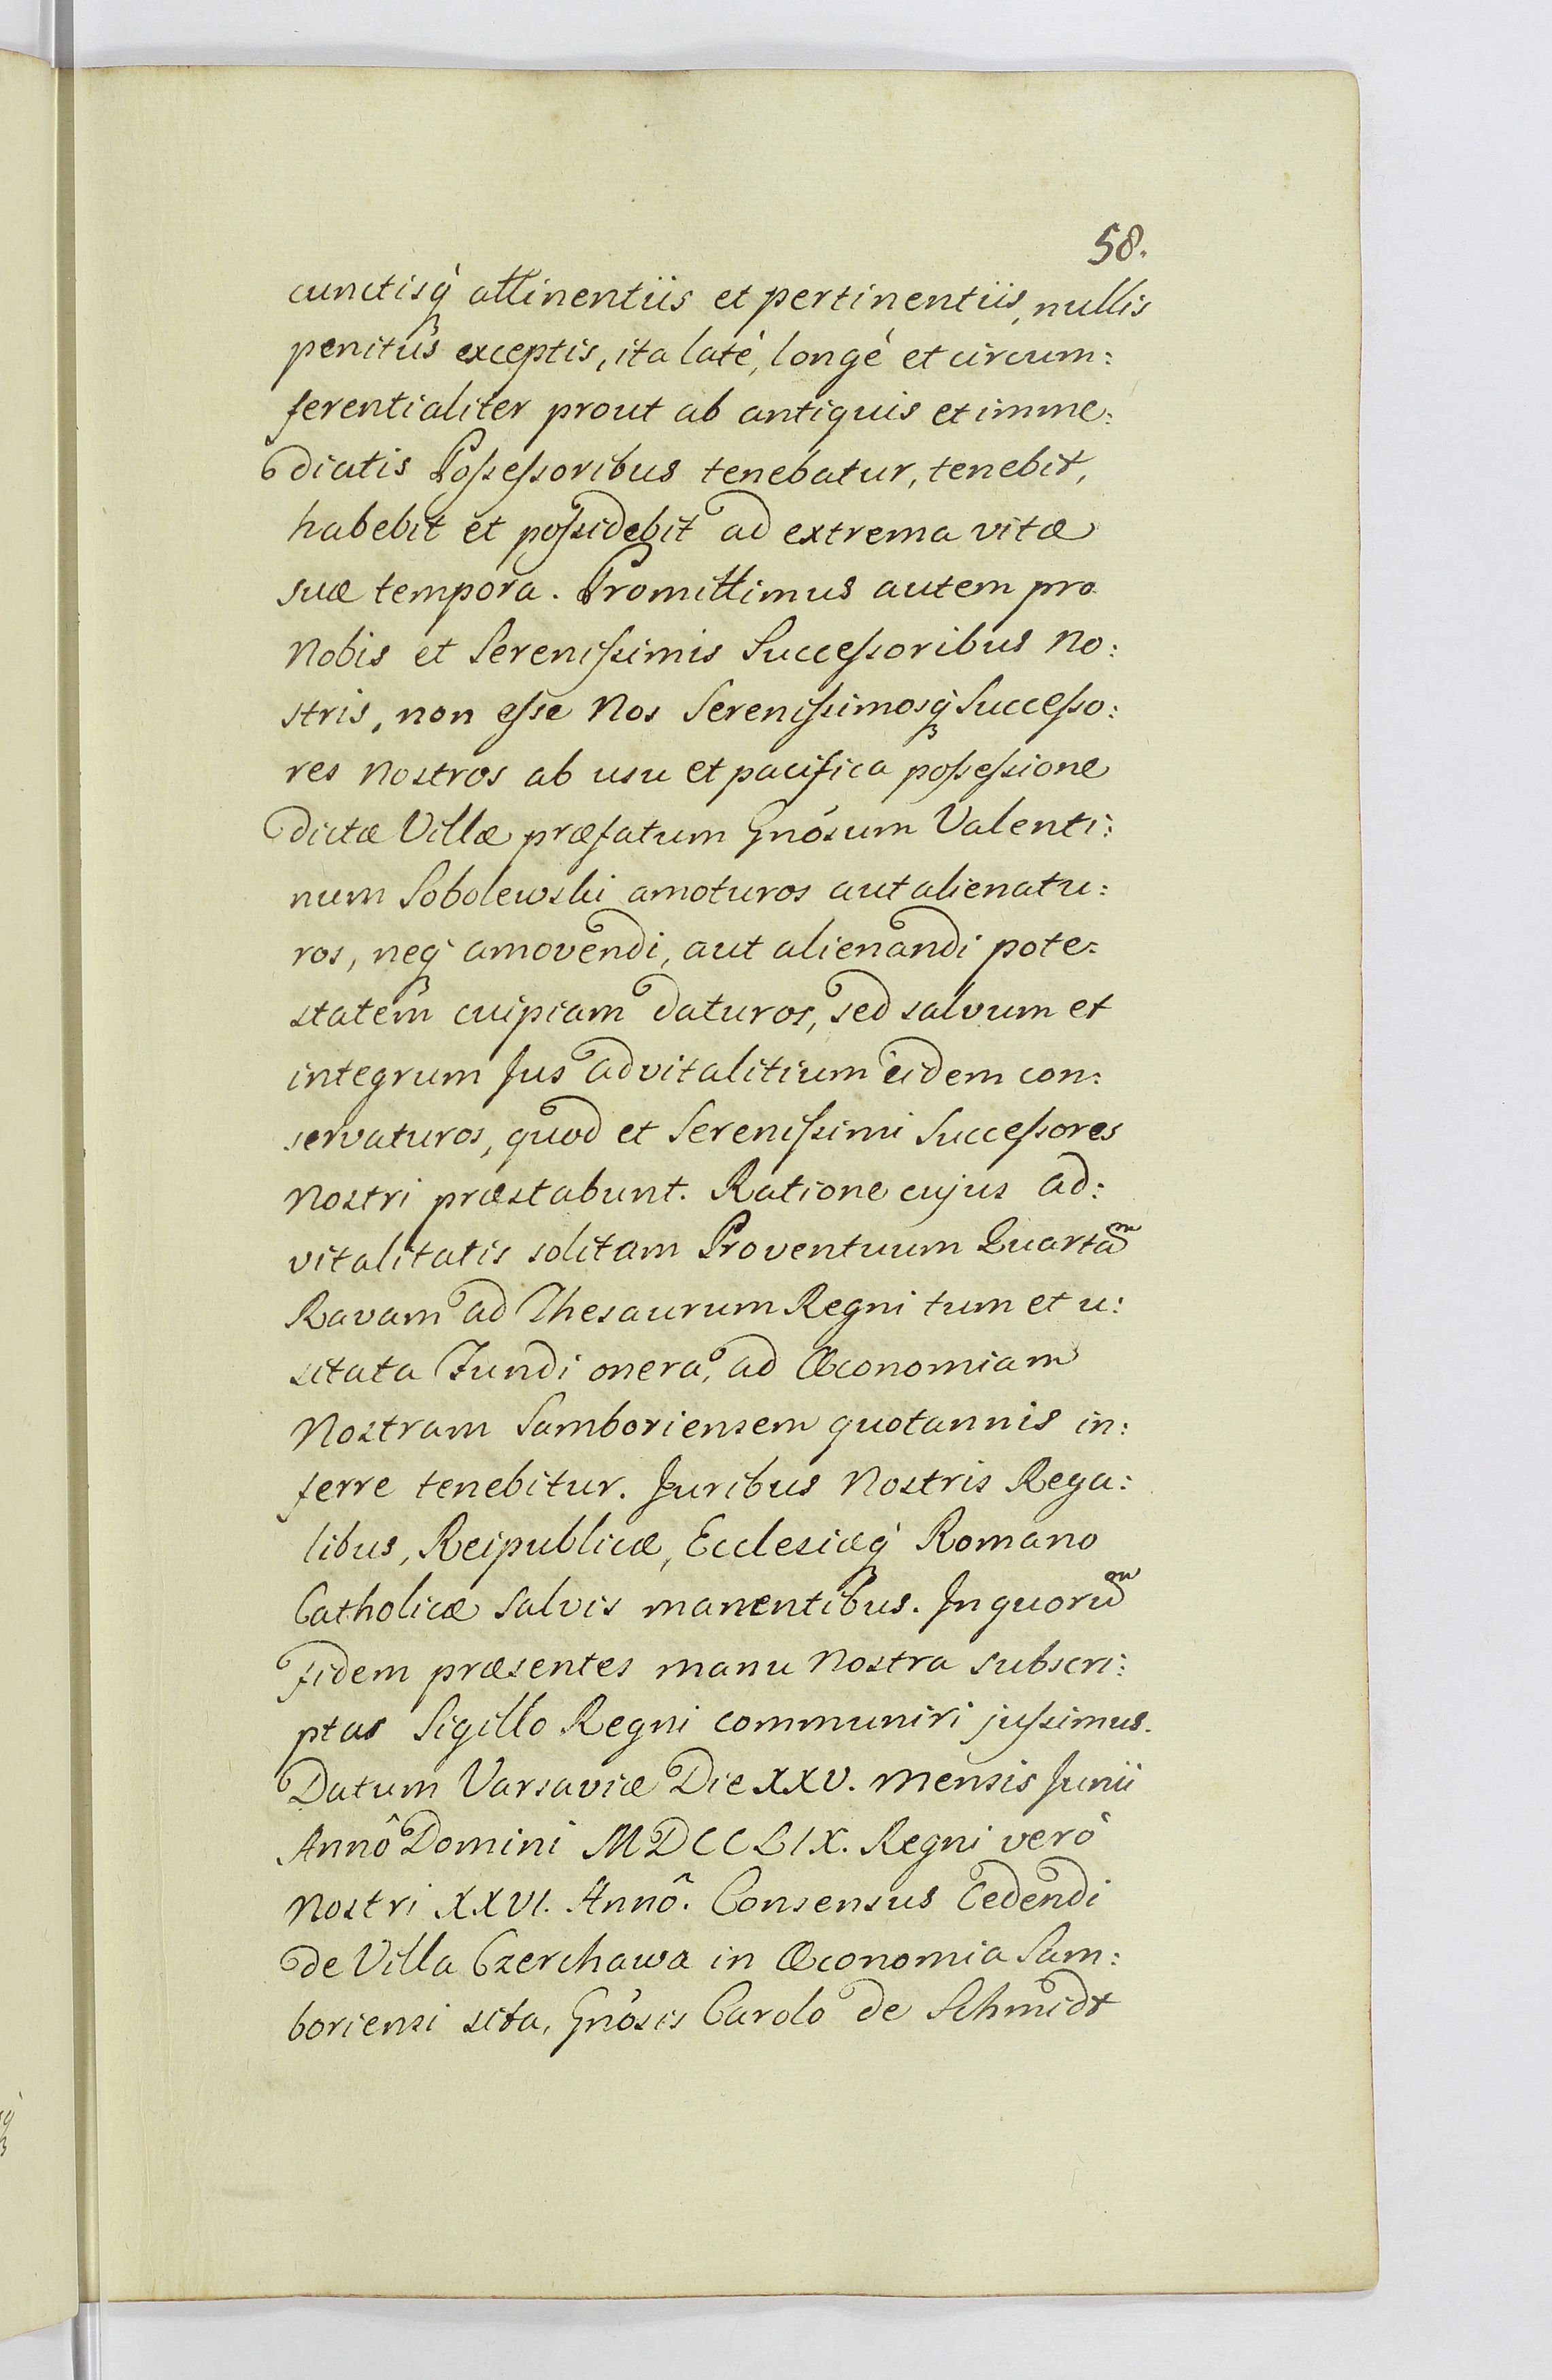 58.
cunctisq́ attinentiis et pertinentiis, nullis
penitùs exceptis, ita latè, longè et circum:
ferentialiter prout ab antiquis et imme:
diatis Poſseſsoribus tenebatur, tenebit,
habebit et poſsidebit ad extrema vitæ
suæ tempora. Promittimus autem pro
Nobis et Sereniſsimis Succeſsoribus No:
stris, non eſse Nos Sereniſsimosq́ Succeſso:
res Nostros ab usu et pacifica poſseſsione
dictæ Villæ præfatum Gnósum Valenti:
num Sobolewski amoturos aut alienatu:
ros, neq́ amovendi, aut alienandi pote:
statem cuipiam daturos, sed salvum et
integrum Jus advitalitium eidem con:
servaturos, quod et Sereniſsimi Succeſsores
Nostri præstabunt. Ratione cujus ad:
vitalitatis solitam Proventuum Quartaᵐ
Ravam ad Thesaurum Regni tum et u:
sitata Fundi onera, ad Œconomiam
Nostram Samboriensem quotannis in:
ferre tenebitur. Juribus Nostris Rega:
libus, Reipublicæ, Ecclesiæq́ Romano
Catholicæ salvis manentibus. In quoruᵐ
fidem præsentes manu Nostra subscri:
ptas Sigillo Regni communiri juſsimus.
Datum Varsaviæ Die XXV. Mensis Junii
Annô Domini MDCCLIX. Regni verò
Nostri XXVI. Annô. Consensus Cedendi
de Villa Czerchawa in Œconomia Sam:
boriensi sita, Gnósis Carolo de Schmidt